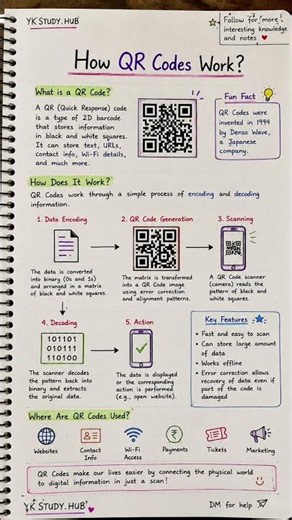 YK STUDY.HUB
Follow for more
interesting knowledge
and notes
How QR Codes Work?
What is a QR Code?
A QR (Quick Response) code
is a type of 2D barcode
that stores information
in black and white squares.
It can store text, URLs,
contact info, Wi-Fi details,
and much more.
Fun Fact
QR Codes were
invented in 1994
by Denso Wave,
a Japanese
company.
How Does It Work?
QR Codes work through a simple process of encoding and decoding
information.
1. Data Encoding
The data is converted
into binary (0s and 1s)
and arranged in a matrix
of black and white squares.
2. QR Code Generation
The matrix is transformed
into a QR Code image
using error correction
and alignment patterns.
3. Scanning
A QR Code scanner
(camera) reads the
pattern of black and
white squares.
4. Decoding
101101
010111
110100
The scanner decodes
the pattern back into
binary and extracts
the original data.
5. Action
The data is displayed
or the corresponding
action is performed
(e.g., open website).
Key Features
• Fast and easy to scan
• Can store large amount
of data
• Works offline
• Error correction allows
recovery of data even if
part of the code is
damaged
Where Are QR Codes Used?
Websites
Contact
Info
Wi-Fi
Access
₹
Payments
Tickets
Marketing
QR Codes make our lives easier by connecting the physical world
to digital information in just a scan!
YK STUDY.HUB
DM for help